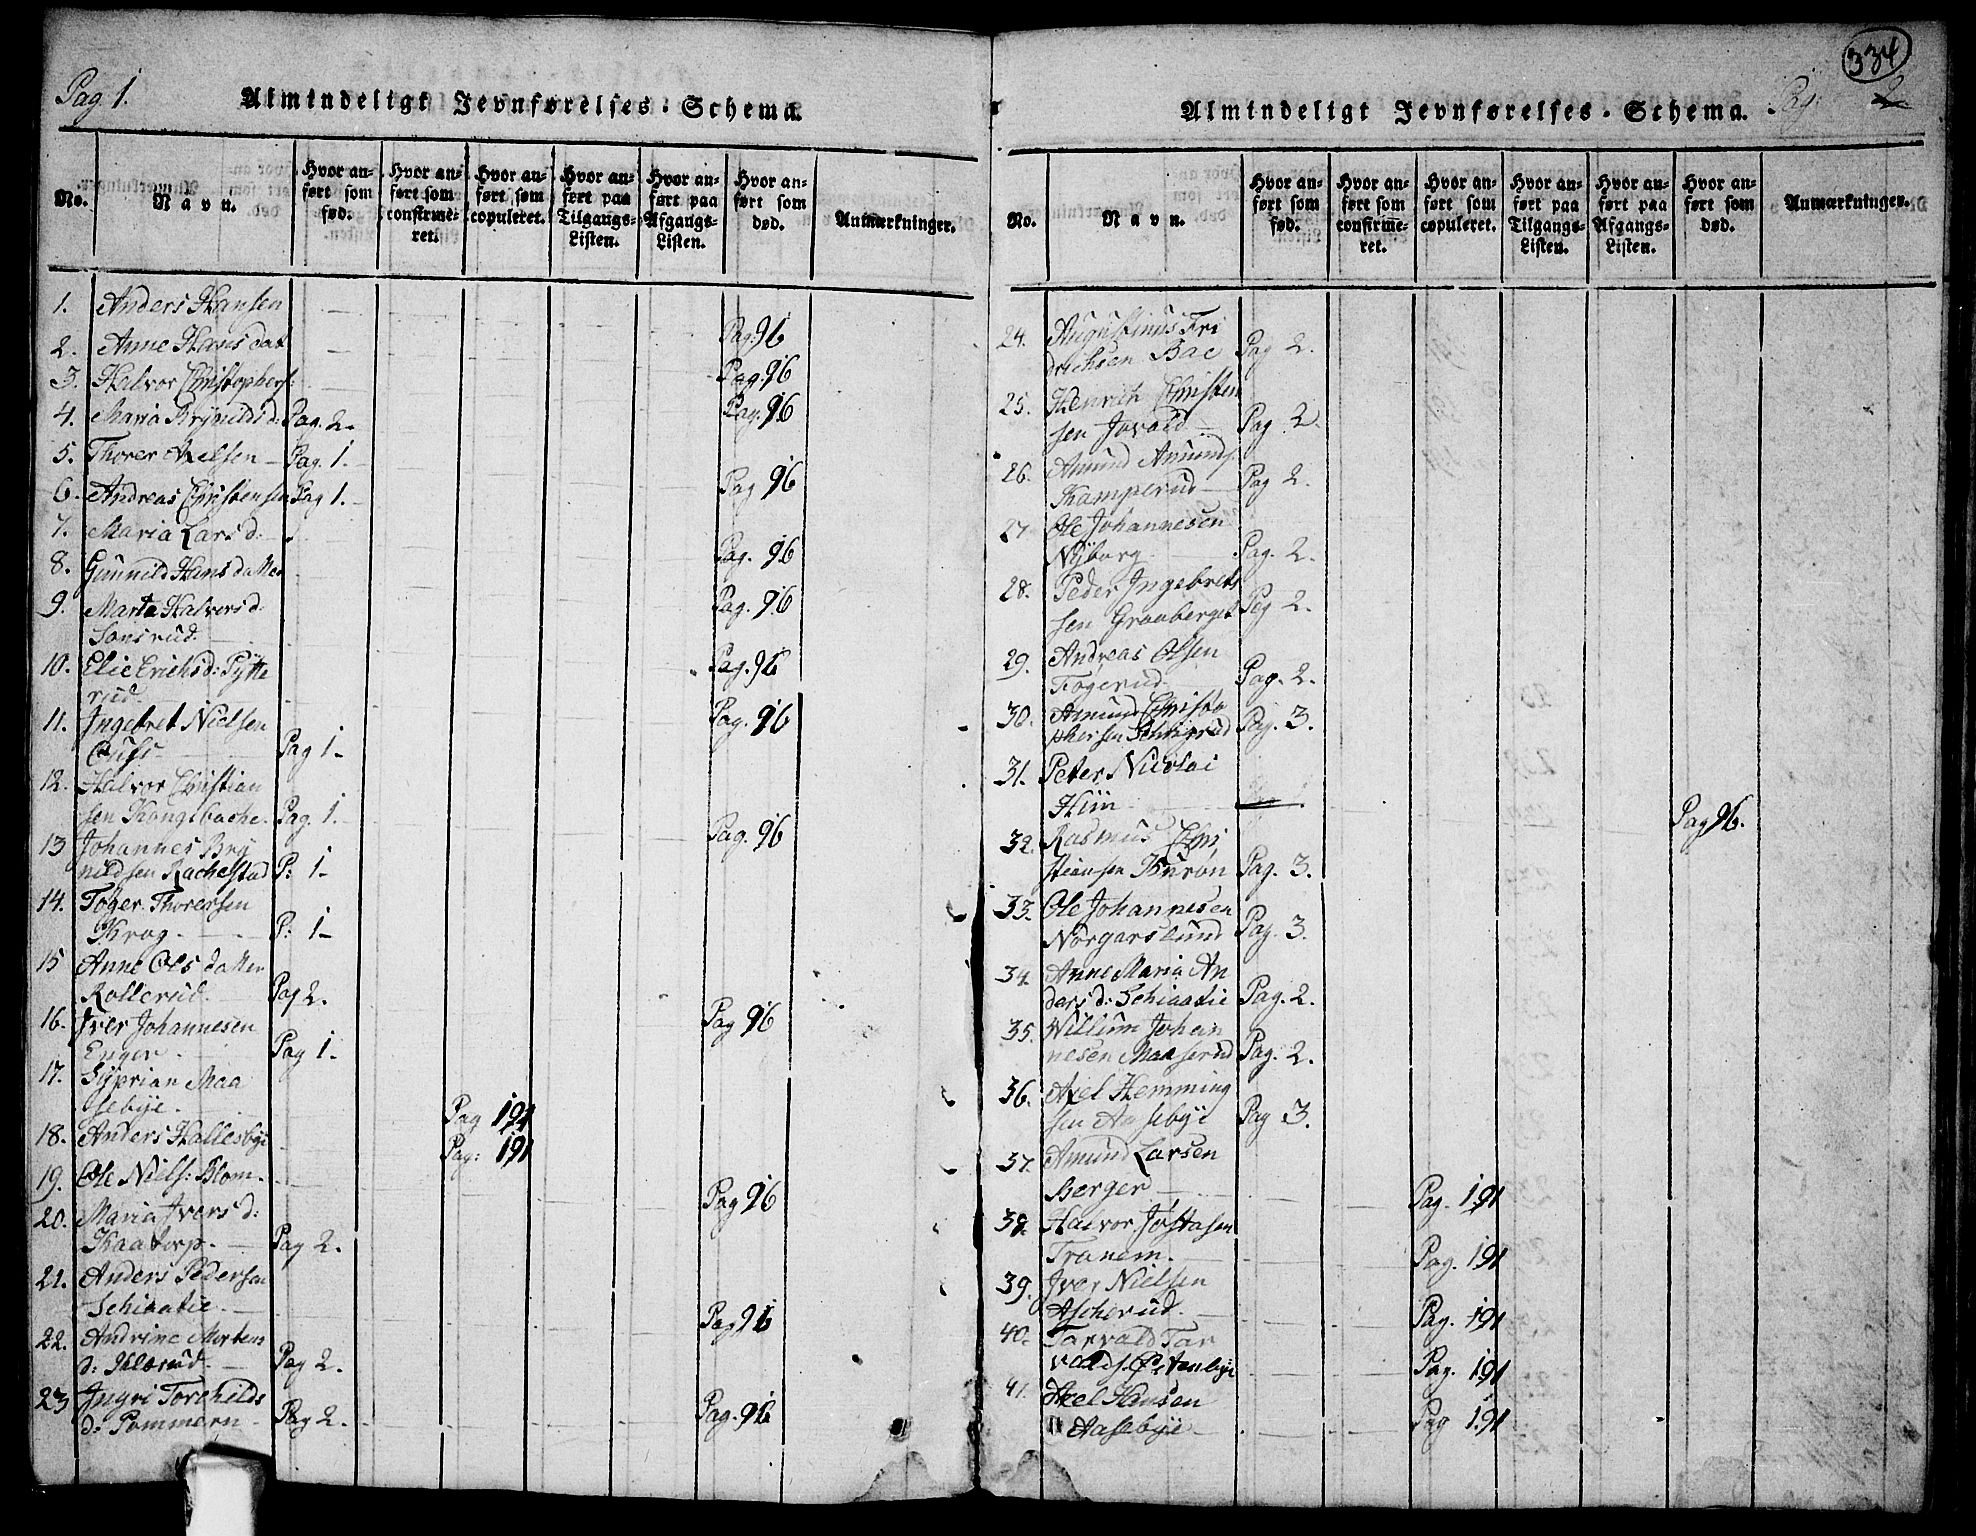 Pag 1.
Almindeligt Jevnførelses-Schema.
No.
Navn.
Hvor an-
ført som
fød.
Hvor an-
ført som
confirme-
ret.
Hvor an-
ført som
copuleret.
Hvor an-
ført paa
Tilgangs-
Listen.
Hvor an-
ført paa
Afgangs-
Listen.
Hvor an-
ført som
død.
Anmærkninger.
1. Anders Hansen Pag. 96
2. Anne Hans dat Pag. 96
3. Halvor Christophers: Pag. 96
4. Maria Brynilds d: Pag. 2.
5. Thorer Axelsen Pag. 1.
Pag 96
6. Andreas Christensen Pag 1.
7. Maria Lars d: Pag. 96
8. Gunnild Hans datter Pag. 96
9. Marta Halvors d:
Sonsrud. Pag. 96
10. Elie Erichs d: Pytte
rud. Pag. 96
11. Ingebret Nielsen
Pag 1.
12. Halvor Christian
sen Kongsbache. Pag. 1. Pag. 96
13 Johannes Bry
nildsen Rachestad P: 1.
14. Toger Thorersen
Krog. P: 1.
15 Anne Ols datter
Rollerud. Pag 2. Pag 96
16. Iver Johannesen
Enger. Pag 1.
17. Syprian Maa
sebye. Pag 191
18. Anders Hallesbye Pag: 191
19. Ole Niels: Blom. Pag 96
20. Maria Ivers d:
Kaatorp. Pag 2.
21. Anders Pedersen
Schiaatie. Pag 96
22. Andrine Mortens
d: Klarud. Pag 2.
23 Ingri Torchilds
d: Pommern Pag 2. Pag. 96
334
Pag: 2
Almindeligt Jevnførelses-Schema.
No.
Navn.
Hvor an-
ført som
fød.
Hvor an-
ført som
confirme-
ret.
Hvor an-
ført som
copuleret.
Hvor an-
ført paa
Tilgangs-
Listen.
Hvor an-
ført paa
Afgangs-
Listen.
Hvor an-
ført som
død.
Anmærkninger.
24. Augustinus Fri
drichsen Bae Pag 2.
25. Henrich Christen
sen Pag 2.
26. Amund Amunds
Kamperud Pag 2.
27 Ole Johannesen
Nyborg Pag. 2.
28. Peder Ingebret
sen Graaberget Pag 2.
29. Andreas Olsen
Fogerud Pag. 2.
30. Amund Christo
phersen Pag. 3.
31. Peter Nicolai
Pag 96.
32. Rasmus Chri
stiansen Pag. 3.
33. Ole Johannesen
Norgarslund Pag. 3.
34. Anne Maria An
ders d: Schiaatie Pag. 2.
35. Willum Johan
nesen Maaserud Pag. 2.
36. Axel Hemming
sen Aasebye Pag 3.
37. Amund Larsen
Berger Pag. 191
38. Halvor Jostasen
Tranem. Pag. 191
39. Iver Nielsen
Ascherud. Pag. 191
40. Tarvald Tar
valds. Pag. 191
41. Axel Hansen
Aasebye Pag 191